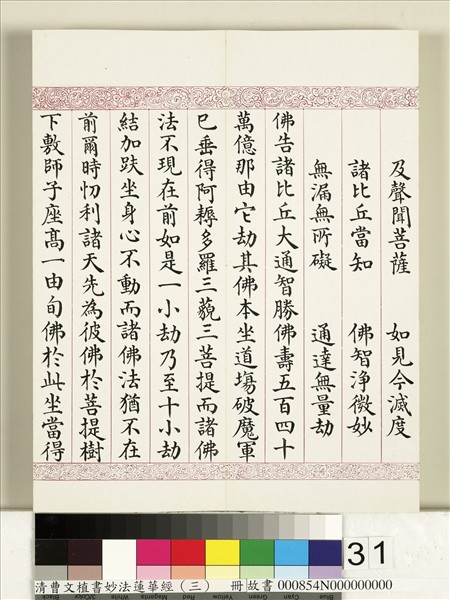 及聲聞菩薩　如見今滅度
諸比丘當知　佛智淨微妙
無漏無所礙　通達無量劫
佛告諸比丘大通智勝佛壽五百四十
萬億那由它劫其佛本坐道場破魔軍
已垂得阿耨多羅三藐三菩提而諸佛
法不現在前如是一小劫乃至十小劫
結加趺坐身心不動而諸佛法猶不在
前爾時忉利諸天先為彼佛於菩提樹
下敷師子座高一由旬佛於此坐當得
31
清曹文植書妙法蓮華經（三）　冊 故書 000854N000000000
Black 3/Color White Magenta Red Yellow Green Cyan Blue